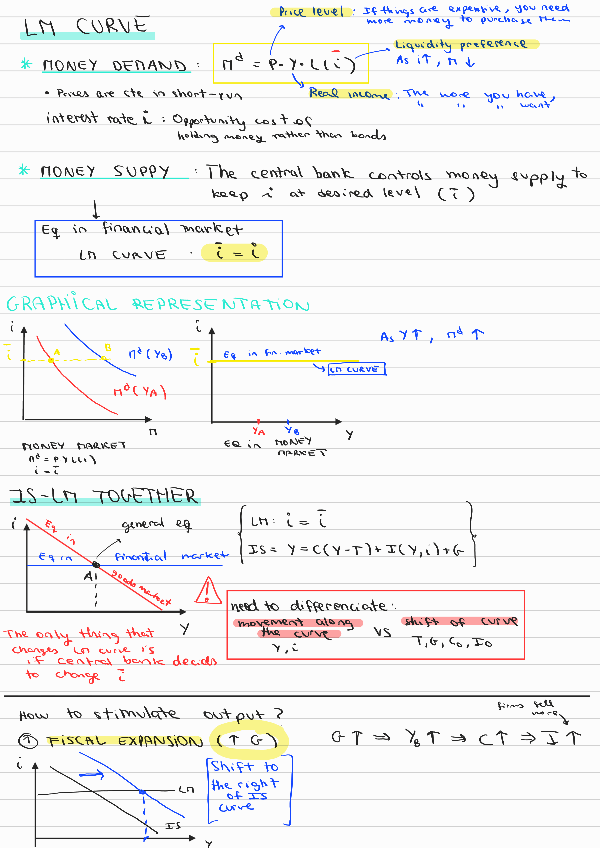 LM CURVE
Price level : If things are expensive, you need
more money to purchase them
* MONEY DEMAND : M^d = P · Y · L(i)
Liquidity preference
As i↑, M ↓
• Prices are cte in short-run
Real income : The more you have,
" " " want
interest rate i : Opportunity cost of
holding money rather than bonds
* MONEY SUPPLY : The central bank controls money supply to
keep i at desired level (i̅)
Eq in financial market
LM CURVE : i̅ = i
GRAPHICAL REPRESENTATION
i
i̅
A
B
M^d(Y_B)
M^d(Y_A)
M
MONEY MARKET
M^d = P Y L(i)
i = i̅
i
i̅
Eq in fin. market
LM CURVE
Y_A
Y_B
Y
EQ in MONEY
MARKET
As Y↑, M^d ↑
IS-LM TOGETHER
i
Eq in
general eq
Eq in financial market
A
goods market
Y
LM: i = i̅
IS = Y = C(Y-T) + I(Y,i) + G
The only thing that
changes LM curve is
if central bank decids
to change i̅
!
need to differenciate:
movement along
the curve
Y, i
VS
shift of curve
T, G, C₀, I₀
How to stimulate output?
① FISCAL EXPANSION (↑ G)
G↑ ⇒ Y_B↑ ⇒ C↑ ⇒ I↑
firms sell
more
i
LM
IS
Y
Shift to
the right
of IS
curve